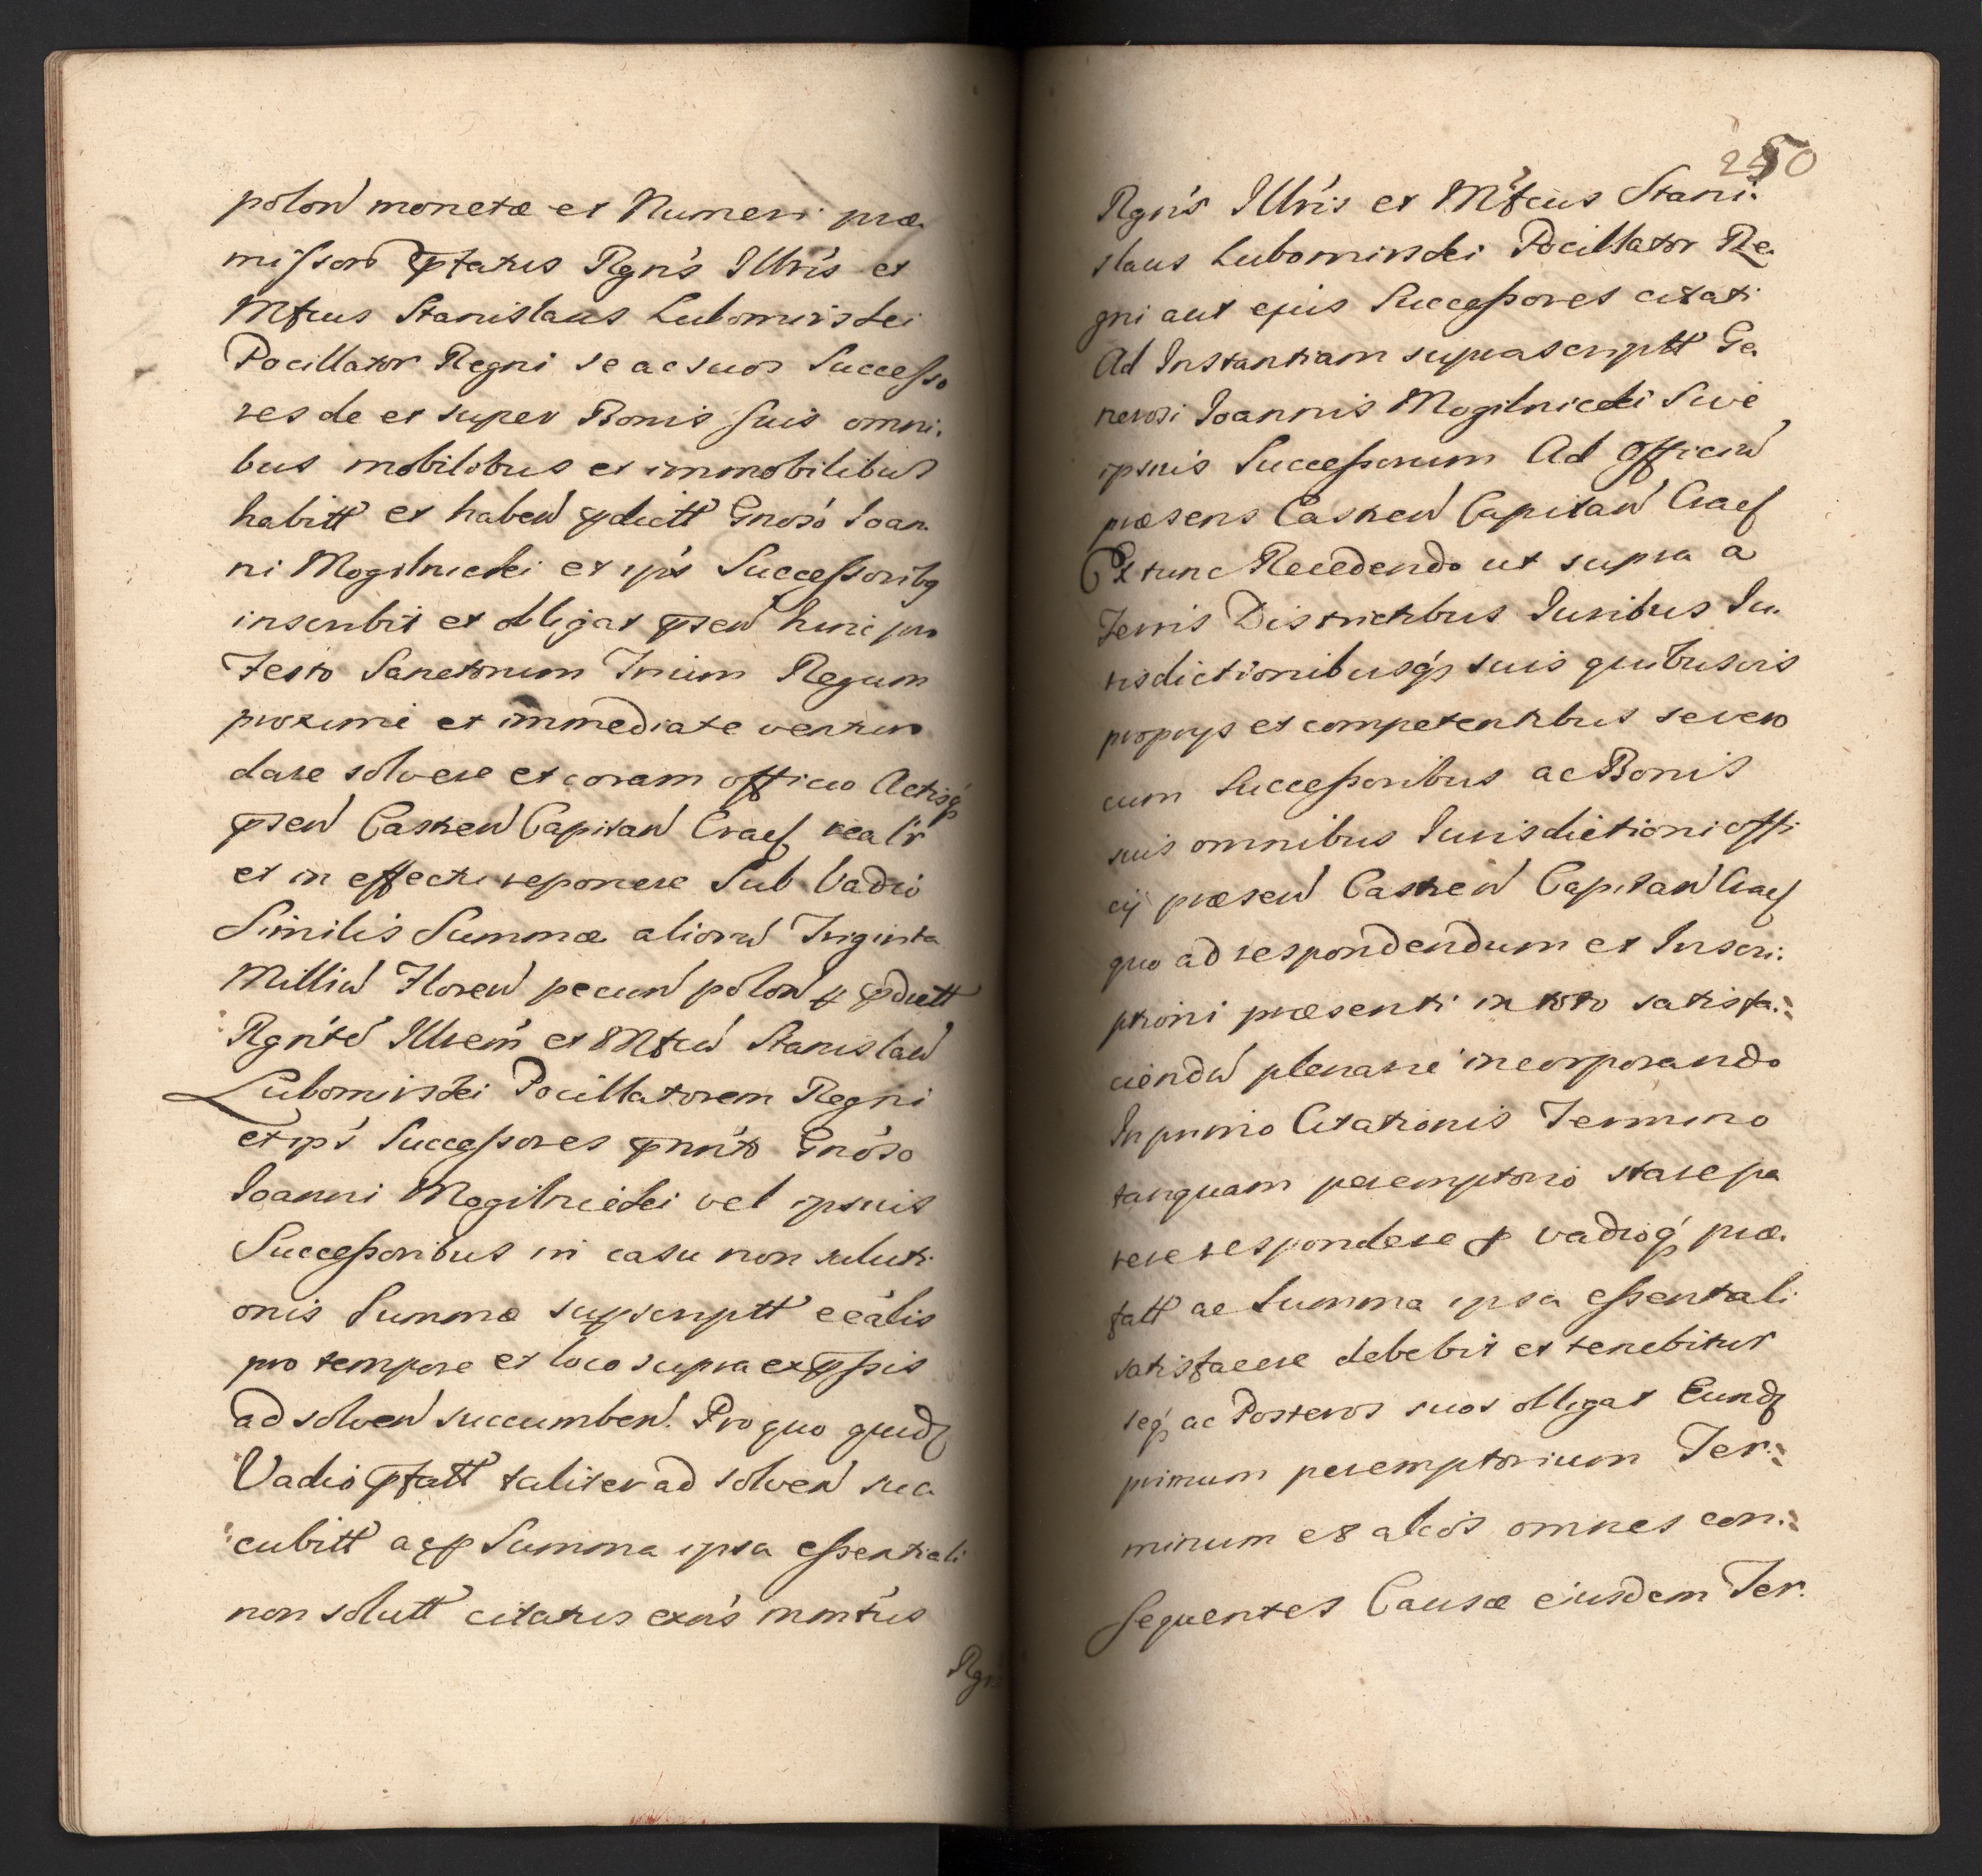 polon monetæ et Numeri præ
missoru pfatus Rgn's Illris et
Mfcus Stanislaus Lubomirski
Pocillator Regni se ac suos Successo
res de et super Bonis suis omni.
bus mobilibus et immobilibus
habitt et haben pdictt Gnoso Joan
ni Mogilnicki et ip's Successoribq
inscribit et obligat psen hinc pro
Festo Sanctorum Trium Regum
proxime et immediate venturo
dare solvere et coram officio Actisq
psen Castren Capitan Crac realr
et in effectu reponere Sub Vadio
Similis Summæ alioru Triginta
Milliu Floren pecun polon p pdictt
Rgn'te Illrem et Mfcu Stanislau
Lubomirski Pocillatorem Regni
et ip's Successores pnn'to Gnoso
Joanni Mogilnicki vel ipsius
Successoribus in casu non soluti
onis Summæ supscriptt eealis
pro tempore et loco supra expssis
ad solven succumben. Pro quo quidz
Vadio pfatt taliter ad solven suc
cubitt acp Summa ipsa essentiali
non solutt citatus exn's mntus
Rgn
250
Rgn's Illris et Mfcus Stani.
slaus Lubomirski Pocillator Re.
gni aut ejus Successores citati
Ad Instantiam suprascriptt Ge.
nerosi Joannis Mogilnicki Sive
ipsius Successorum Ad Officiu
præsens Castren Capitan Crac
Extunc Recedendo ut supra a
Terris Districtibus Juribus Ju.
risdictionibusq suis quibusvis
proprys et competentibus se vero
cum Successoribus ac Bonis
suis omnibus Jurisdictioni offi
cij præsen Castren Capitan Crac
quo ad respondendum et Inscri:
ptioni præsenti in toto satisfa.:
ciendu plenarie incorporando
In primo Citationis Termino
tanquam peremptorio stare pa
rere respondere p vadioq præ.
fatt ac Summa ipsa essentali
satisfacere debebit et tenebitur
seq ac Posteros suos obligat Eundz
primum peremptorium Ter.:
minum et alios omnes con.:
sequentes Causæ eiusdem Ter.